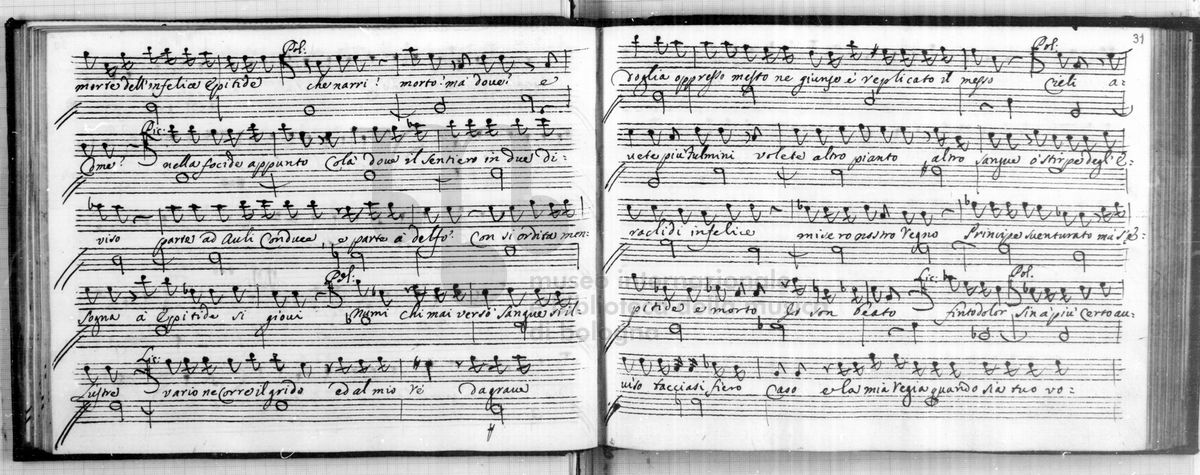 Pol:
morte dell'infelice Epitide che narri! morto! ma dove? e
Lic:
Come? nella focide appunto Colà dove il sentiero in due di-
viso parte ad Auli Conduce e parte à delfo. Con si ordita men-
Pol:
sogna à Epitide si giovi Numi chi mai versò sangue
Lic:
lustre vario ne corre il grido ed al mio Rè da grave
31
Pol:
doglia oppresso mesto ne giunse è replicato il messo Cieli a-
vete più fulmini volete altro pianto altro sangue ò stirpe degl'E-
raclidi infelice misero nostro Regno Principe sventurato ma s'E-
Lic: Pol:
pitide e morto Io son beato finto dolor sin a più certo au-
viso tacciasi fiero Caso e la mia Regia quando sia tuo vo-
museo internazionale
e biblioteca della musica
di bologna